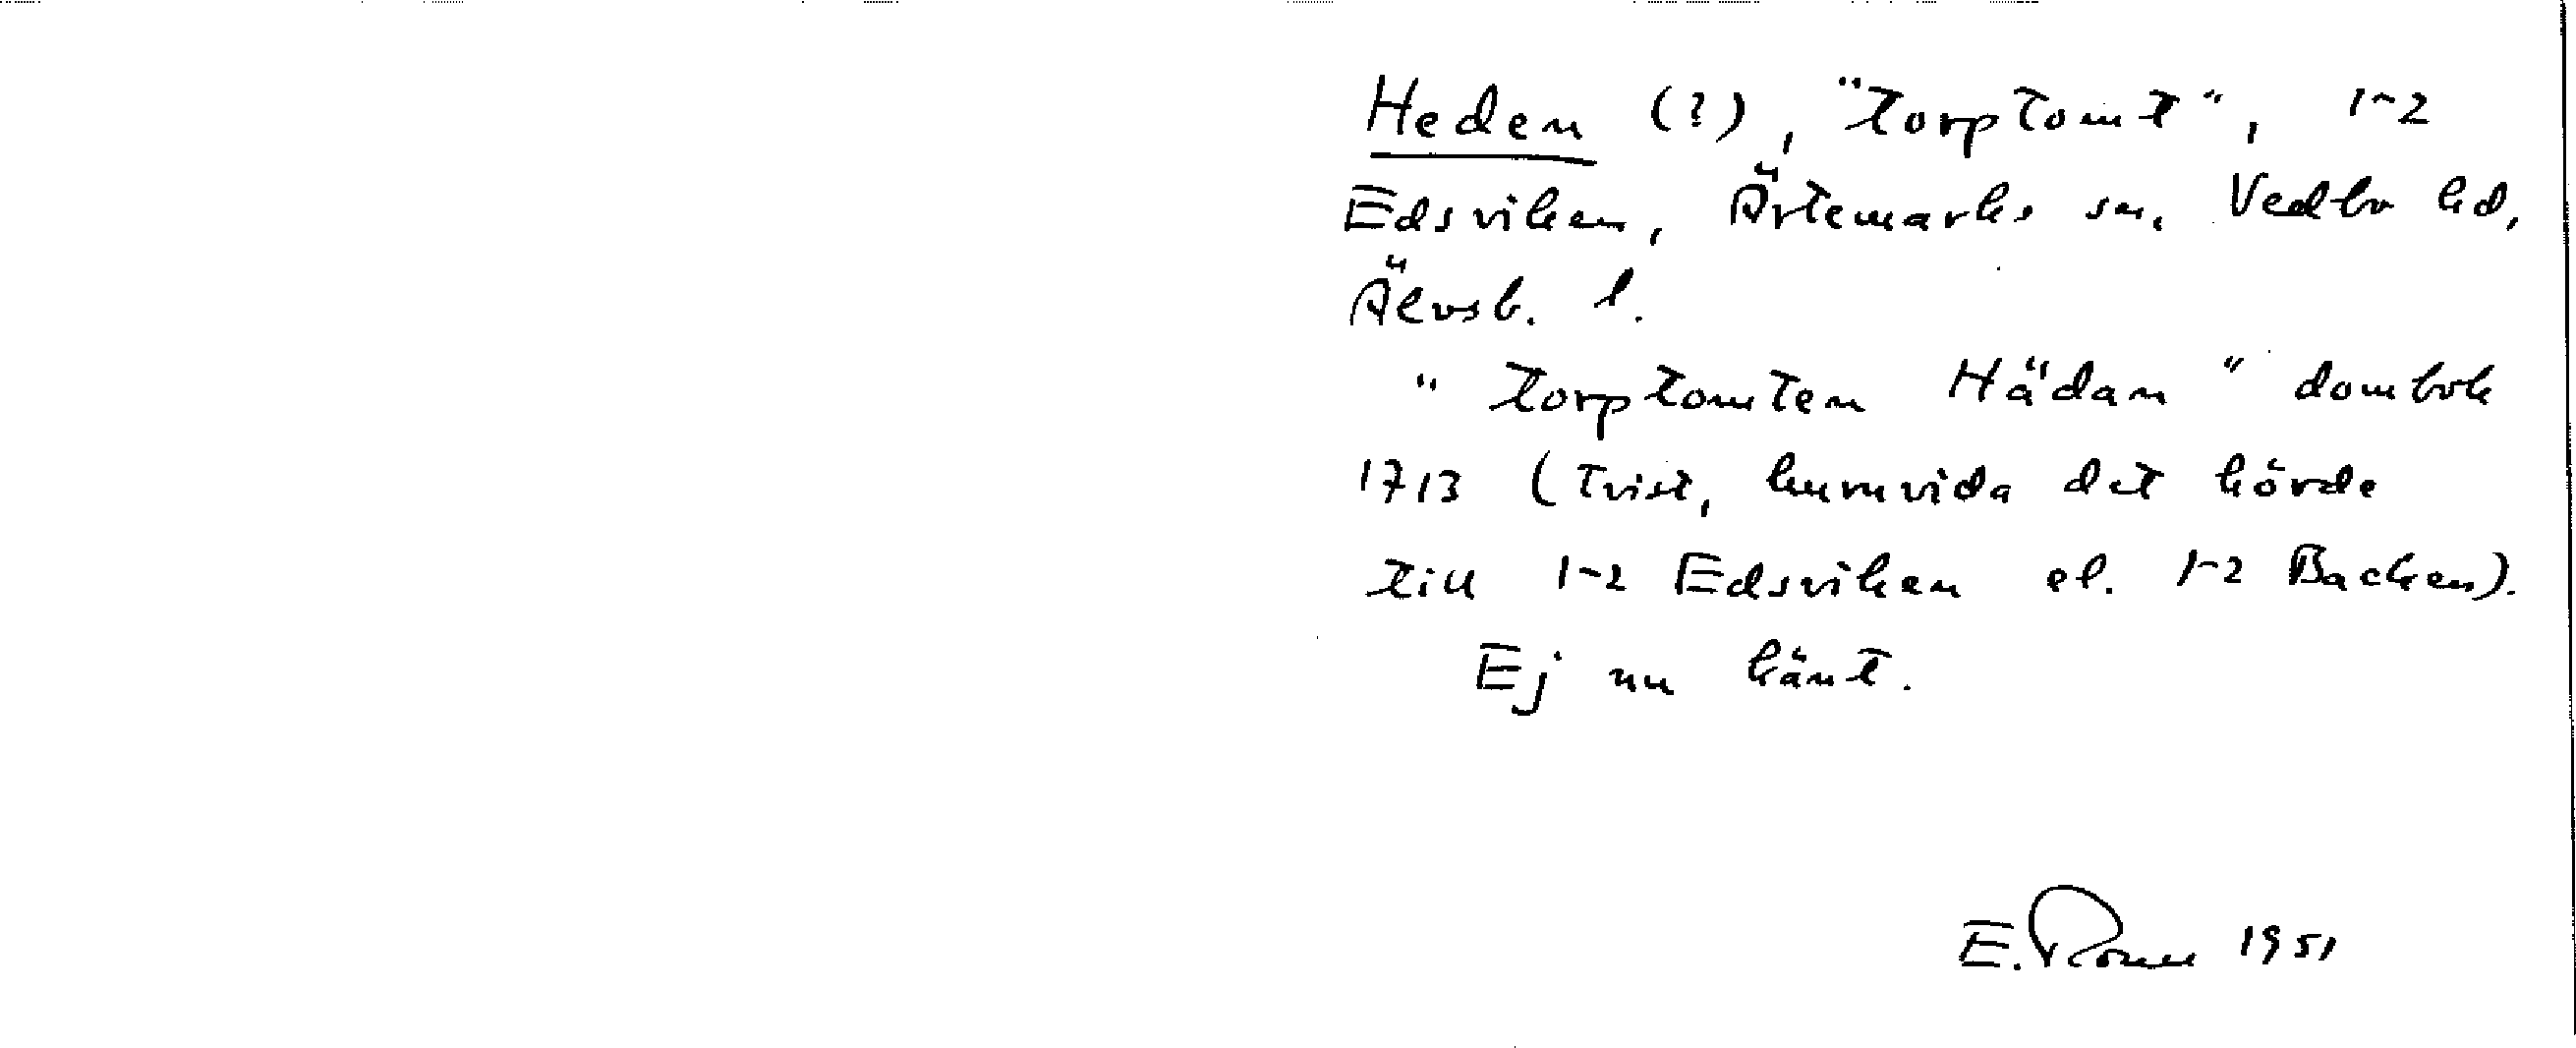 Heden (?), "torptomt", 1-2
Edsviken, Ärtemarks sn, Vedbo hd,
Älvsb. l.
"torptomten Hädan" dombok
1713 (tvist, huruvida det hörde
till 1-2 Edsviken el. 1-2 Backen).
Ej nu känt.
E. 1951